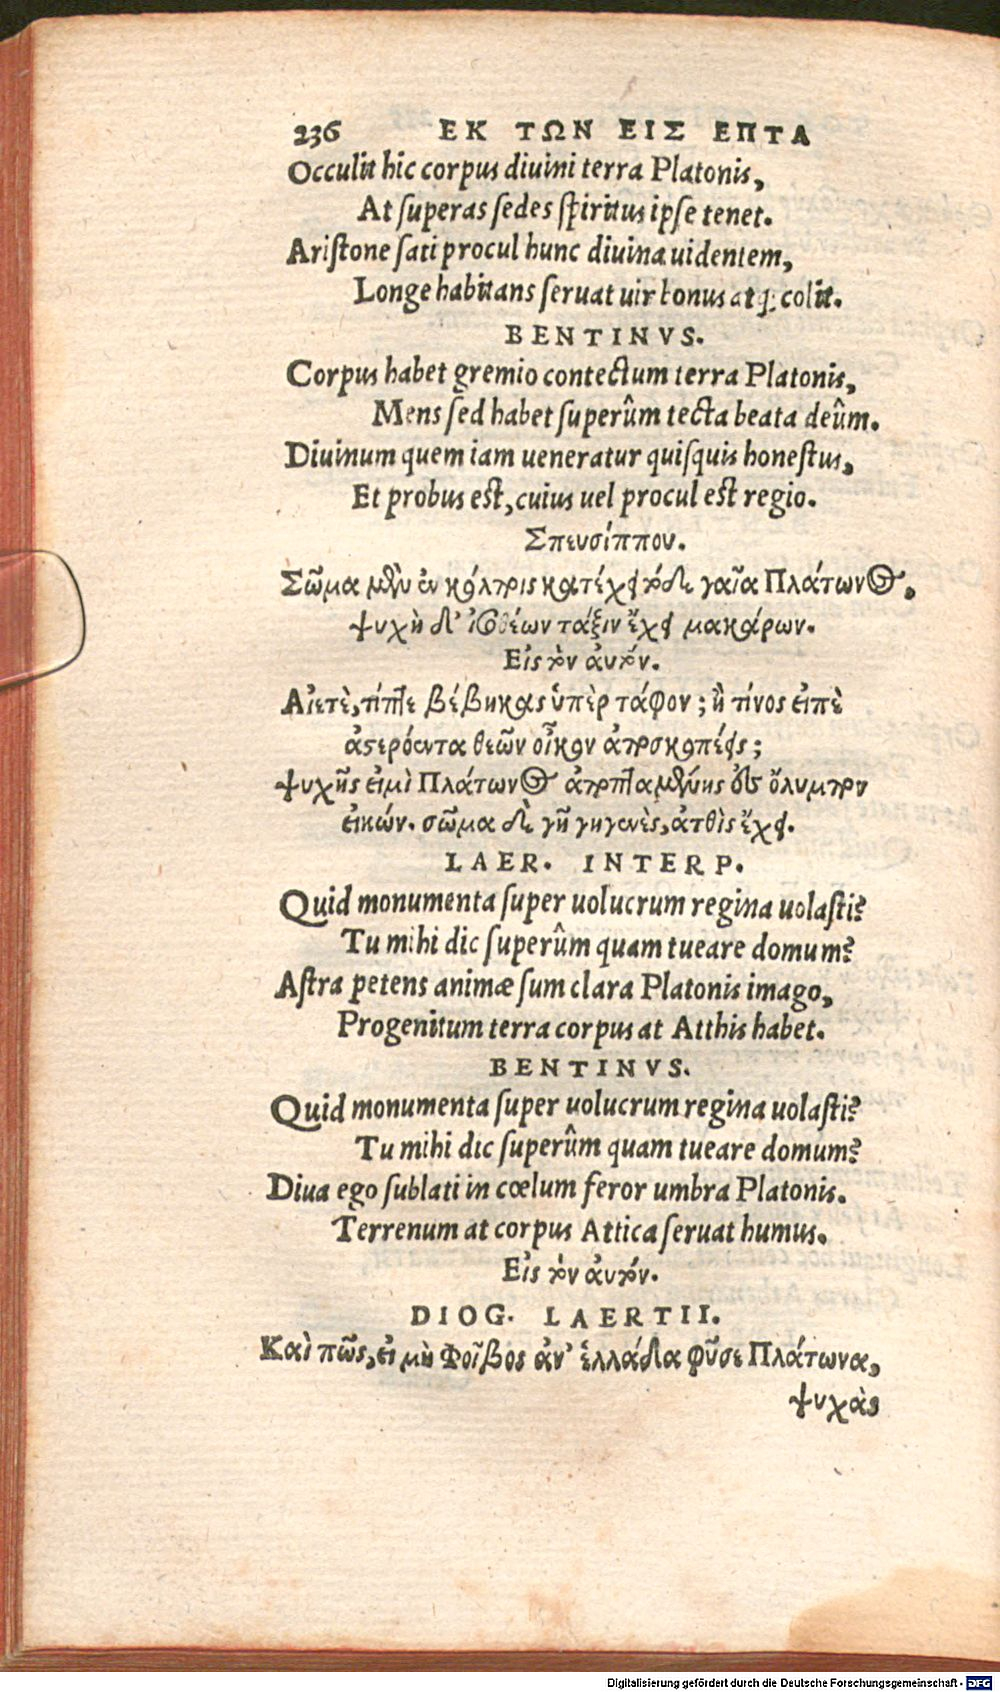 236 ΕΚ ΤΩΝ ΕΙΣ ΕΠΤΑ
Occulit hic corpus diuini terra Platonis,
At superas sedes spiritus ipse tenet.
Aristone sati procul hunc diuina uidentem,
Longe habitans seruat uir bonus atq; colit.
BENTINVS.
Corpus habet gremio contectum terra Platonis,
Mens sed habet superûm tecta beata deûm.
Diuinum quem iam ueneratur quisquis honestus,
Et probus est, cuius uel procul est regio.
Σπευσίππου.
Σῶμα μὲν ἐν κόλποις κατέχει τόδε γαῖα Πλάτωνος,
ψυχὴ δ' ἰσοθέων τάξιν ἔχει μακάρων.
Εἰς τὸν αὐτόν.
Αἰετὲ, τίπτε βέβηκας ὑπὲρ τάφον; ἢ τίνος εἰπὲ
ἀστερόεντα θεῶν οἶκον ἀποσκοπέεις;
ψυχῆς εἰμὶ Πλάτωνος ἀποπταμένης ἐς ὄλυμπον
εἰκών. σῶμα δὲ γῆ γηγενὲς, ἀτθὶς ἔχει.
LAER. INTERP.
Quid monumenta super uolucrum regina uolasti?
Tu mihi dic superûm quam tueare domum?
Astra petens animæ sum clara Platonis imago,
Progenitum terra corpus at Atthis habet.
BENTINVS.
Quid monumenta super uolucrum regina uolasti?
Tu mihi dic superûm quam tueare domum?
Diua ego sublati in cœlum feror umbra Platonis.
Terrenum at corpus Attica seruat humus.
Εἰς τὸν αὐτόν.
DIOG. LAERTII.
Καὶ πῶς, εἰ μὴ Φοῖβος ἀν' ἑλλάδα φῦσε Πλάτωνα,
ψυχὰς
Digitalisierung gefördert durch die Deutsche Forschungsgemeinschaft - DFG